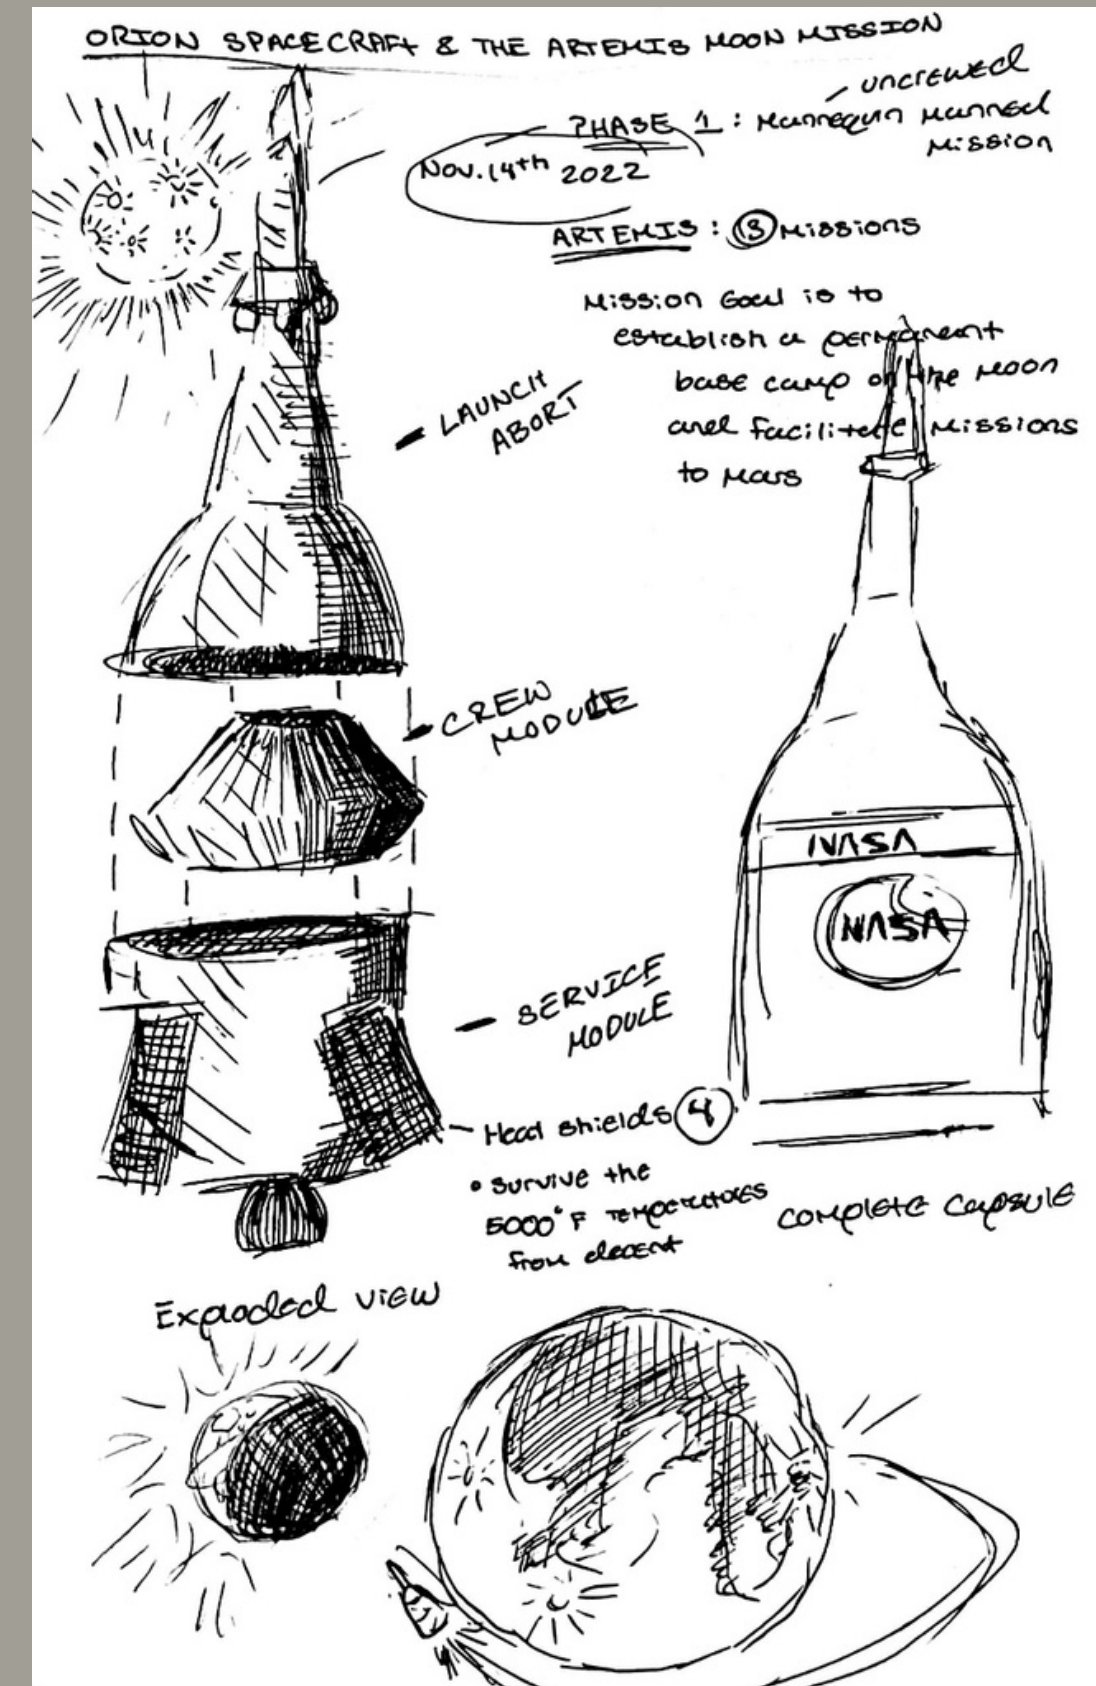 ORION SPACECRAFT & THE ARTEMIS MOON MISSION
uncrewed
PHASE 1: Mannequin Manned
Mission
Nov. 14th 2022
ARTEMIS: 13 Missions
Mission Goal is to
establish a permanent
base camp on the Moon
and facilitate Missions
to Mars
LAUNCH
ABORT
CREW
MODULE
NASA
NASA
SERVICE
MODULE
Head shields 4
• Survive the
5000°F Temperatures
from decent
Complete Capsule
Exploded view